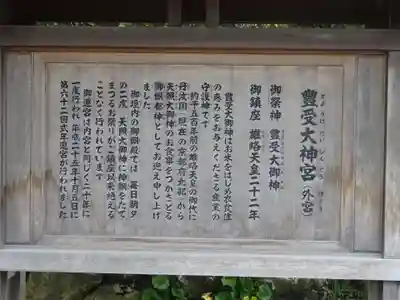 豊受大神宮（外宮）
とようけだいじんぐう　げくう
御祭神　豊受大御神
御鎮座　雄略天皇二十二年
豊受大御神はお米をはじめ衣食住
の恵みをお与えくださる産業の
守護神です
約千五百年前の雄略天皇の御代に
丹波国（現在の京都府北部）から
天照大御神のお食事をつかさどる
御饌都神としてお迎え申し上げ
ました
御垣内の御饌殿では　毎日朝夕
の二度　天照大御神に神饌をたて
まつるお祭りがご鎮座以来絶える
ことなく行われています
御遷宮は内宮と同じく二十年に
一度行われ　平成二十五年十月五日に
第六十二回式年遷宮が行われました